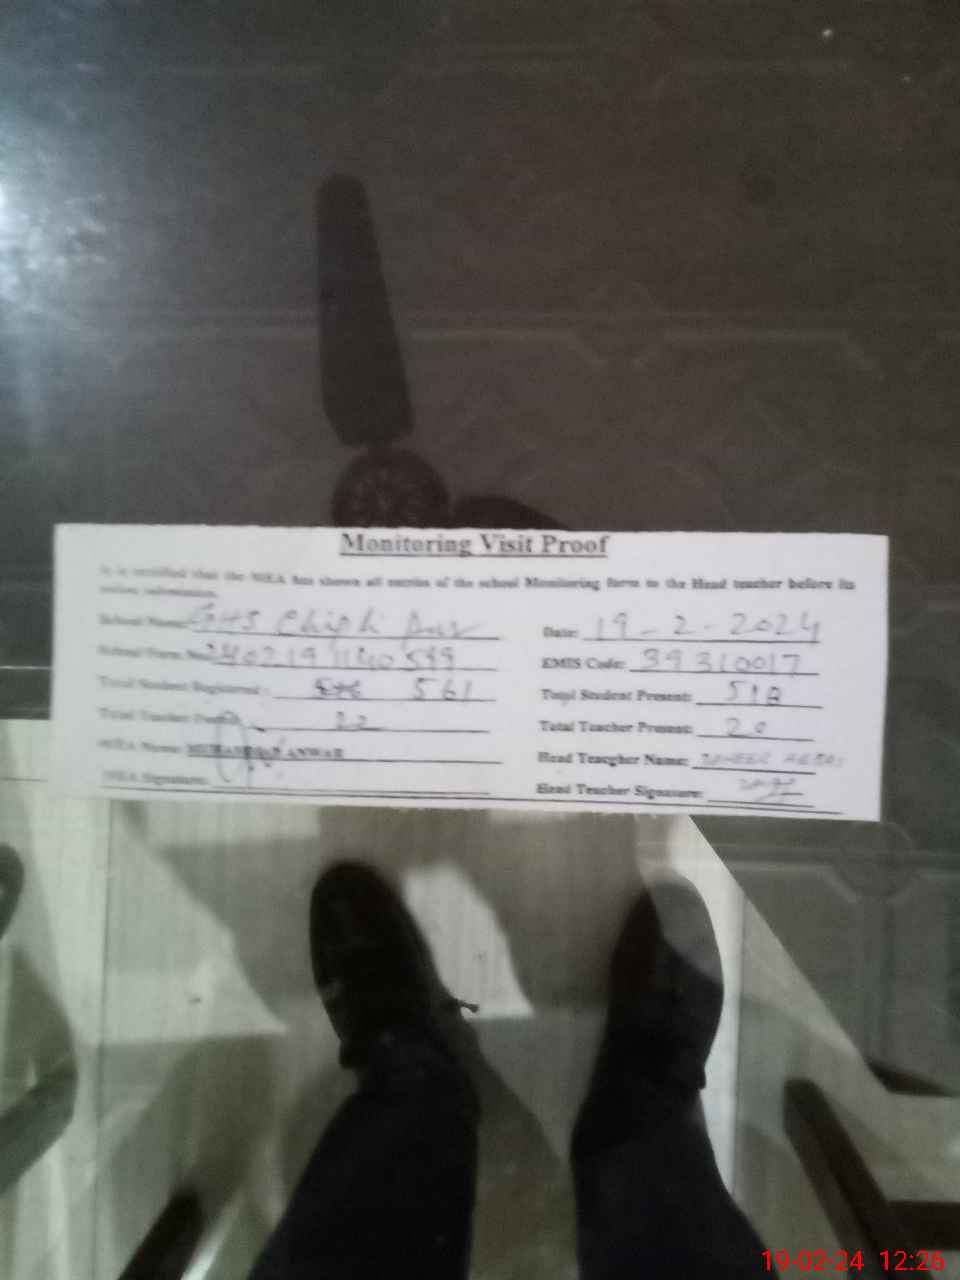 Monitoring Visit Proof
It is certified that the MEA has shown all entries of the school Monitoring form to the Head teacher before its
online submission.
School Name: GHS Chip
Date: 19-2-2024
School Form No.
EMIS Code: 39310017
Total Student Registered: 561
Total Student Present: 518
Total Teacher 22
Total Teacher Present: 20
MEA Name: MUHAMMAD ANWAR
Head Teacgher Name:
MEA Signature:
Head Teacher Signature:
19-02-24 12:26